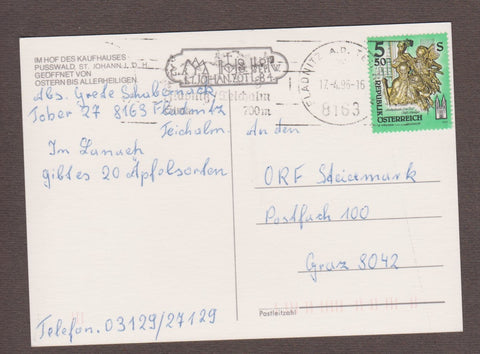 IM HOF DES KAUFHAUSES
PUSSWALD, ST. JOHANN I. D. H.
GEÖFFNET VON
OSTERN BIS ALLERHEILIGEN.
Abs. Grede Schabernack
Tober 27 8163 Fladnitz
Teichalm.
Im Lanach
gibt es 20 Äpfelsorten
Telefon. 03129/27129
FLADNITZ A.D.
17.-4.96-16
8163
700m
5
50
S
REPUBLIK
ÖSTERREICH
An den
ORF Steiermark
Postfach 100
Graz 8042
Postleitzahl